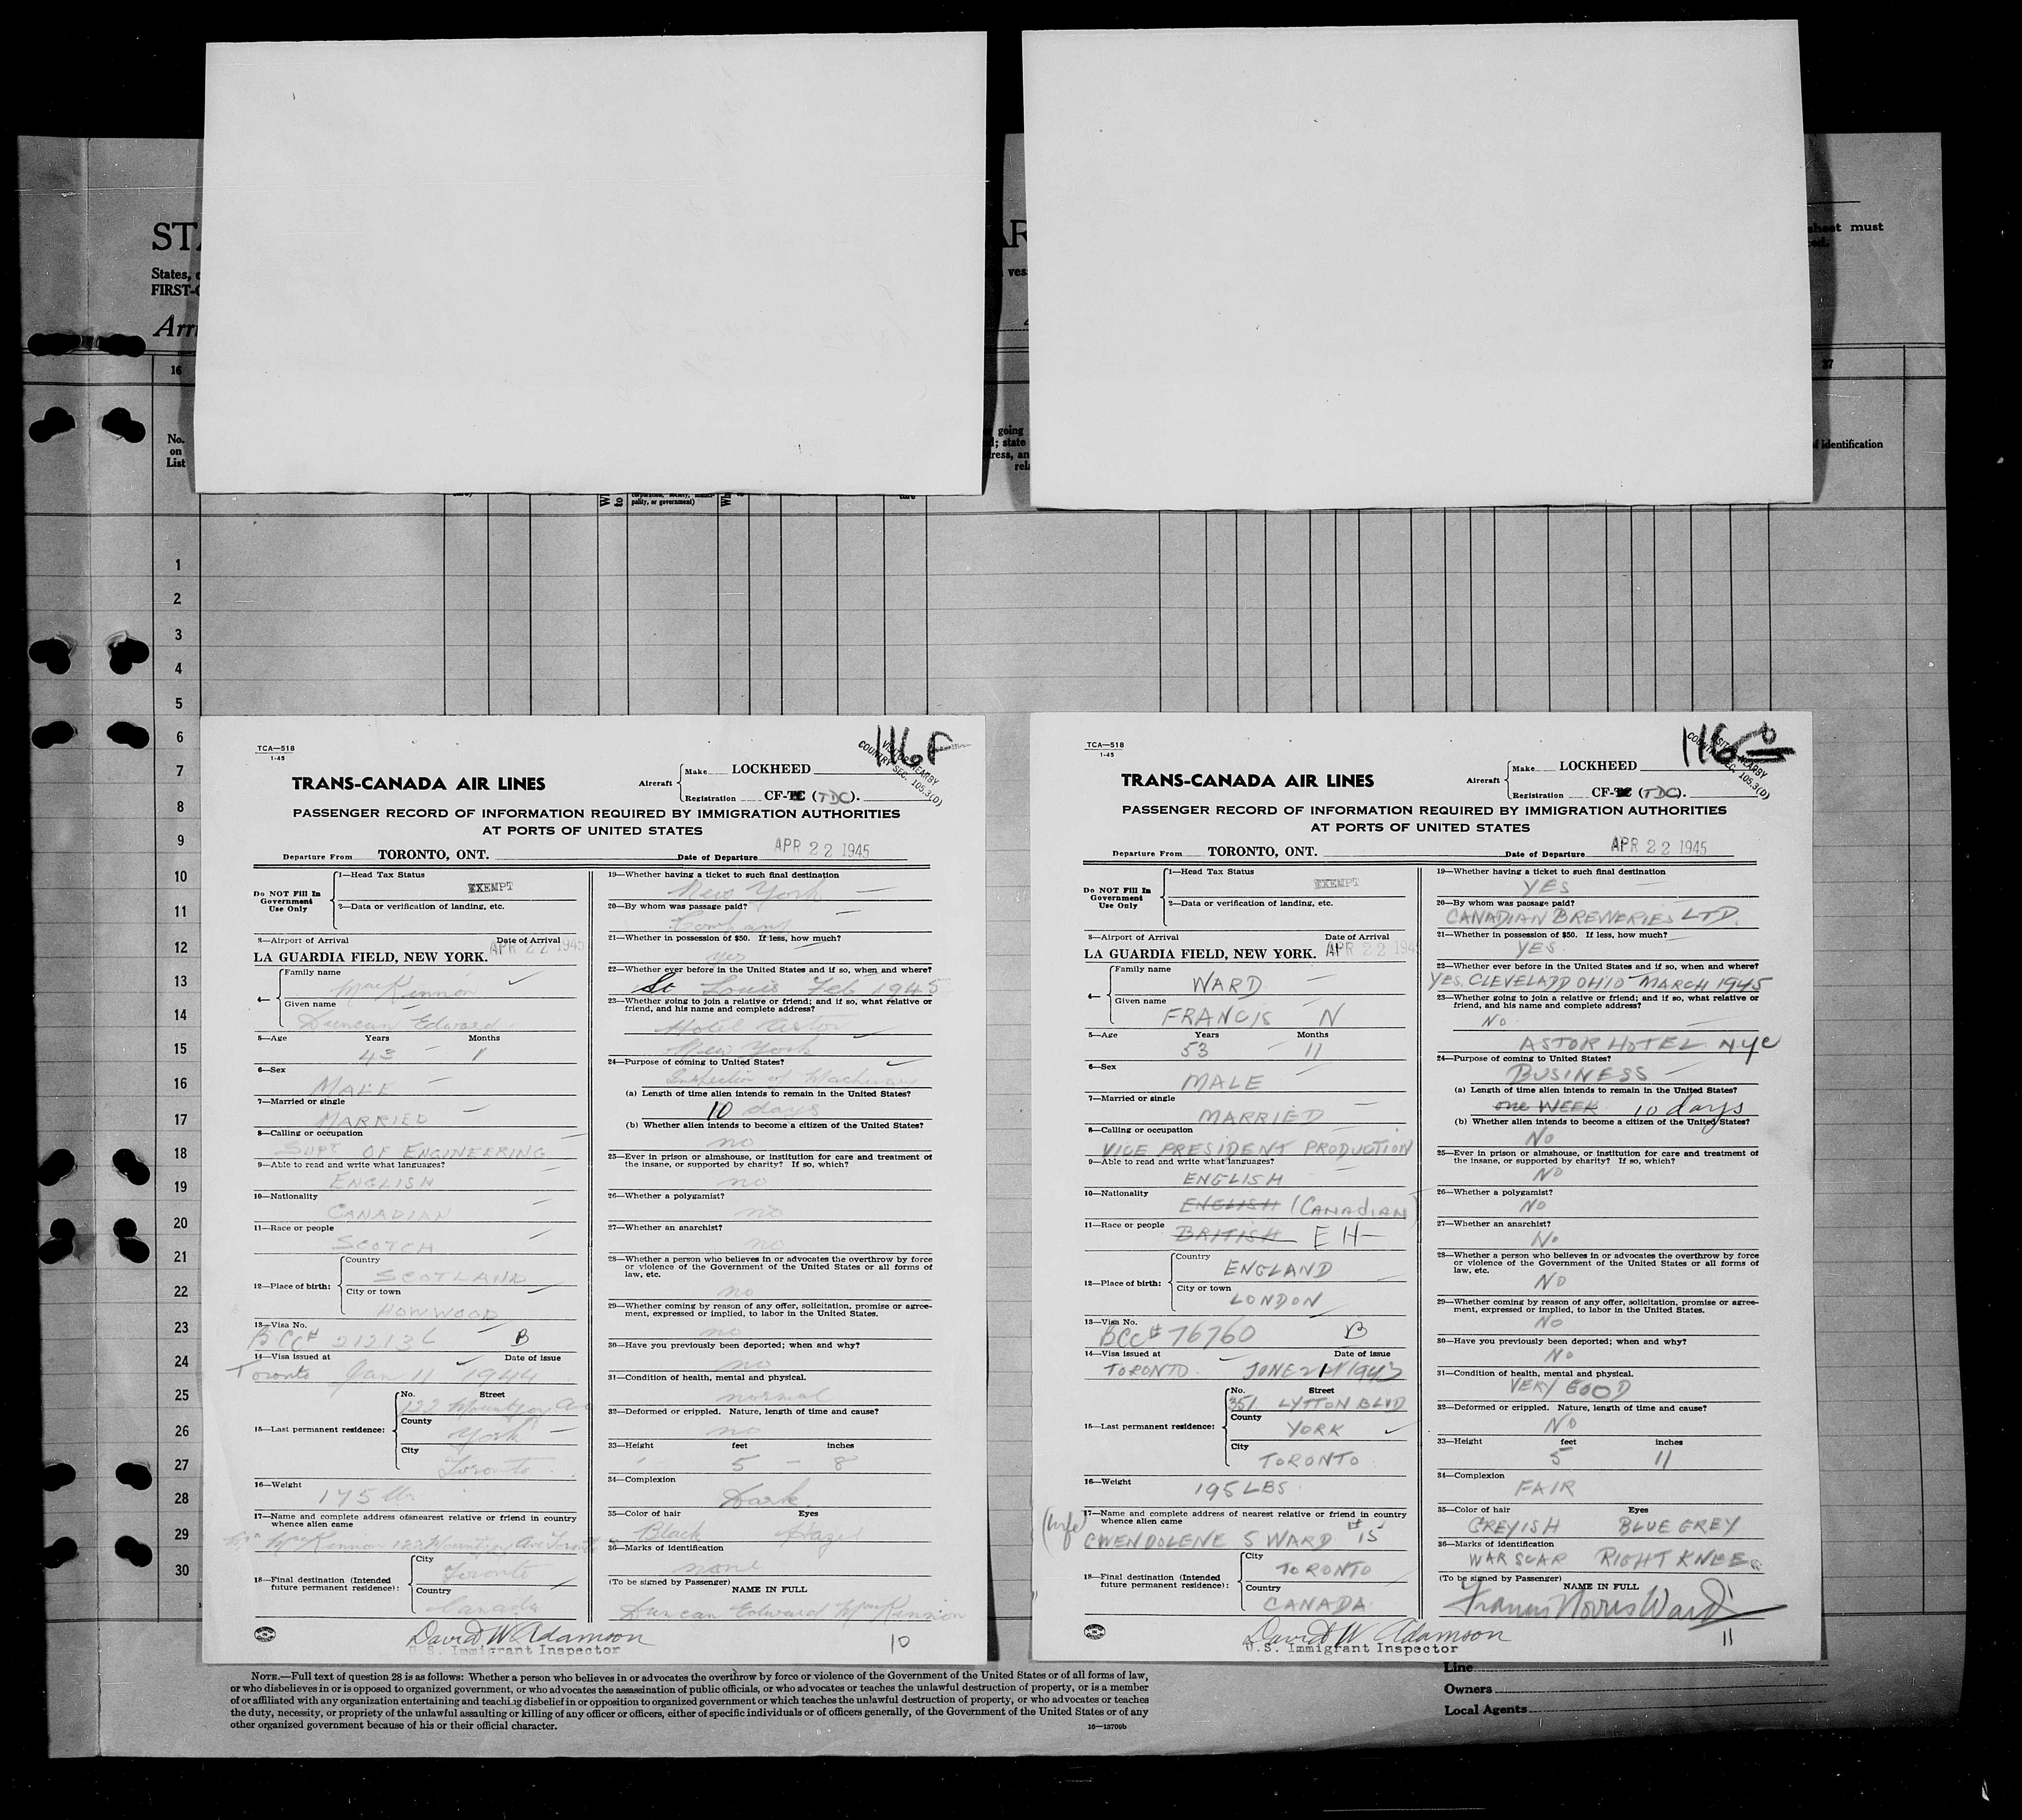 STA
AR
sheet must
ced.
States,
FIRST-C
ves
Arri
16
27
No.
on
List
going
d; state
ress, an
rela
of identification
corporation, society, munici-
pality, or government)
ture
1
2
3
4
5
6
7
8
9
10
11
12
13
14
15
16
17
18
19
20
21
22
23
24
25
26
27
28
29
30
TCA—518
1-45
116F
VISITOR NEARBY
COUNTRY SEC. 105.3(D)
TRANS-CANADA AIR LINES
Aircraft
Make LOCKHEED
Registration CF-TC (TDC).
PASSENGER RECORD OF INFORMATION REQUIRED BY IMMIGRATION AUTHORITIES
AT PORTS OF UNITED STATES
Departure From TORONTO, ONT. Date of Departure APR 22 1945
Do NOT Fill In
Government
Use Only
1—Head Tax Status
EXEMPT
2—Data or verification of landing, etc.
3—Airport of Arrival Date of Arrival
LA GUARDIA FIELD, NEW YORK. APR 22 1945
4—
Family name
MacKinnon
Given name
Duncan Edward
5—Age Years Months
43 1
6—Sex
MALE
7—Married or single
MARRIED
8—Calling or occupation
SUPT OF ENGINEERING
9—Able to read and write what languages?
ENGLISH
10—Nationality
CANADIAN
11—Race or people
SCOTCH
12—Place of birth:
Country
SCOTLAND
City or town
HOWWOOD
13—Visa No.
BCC# 212136 B
14—Visa issued at Date of issue
Toronto Jan 11 1944
15—Last permanent residence:
No. Street
122 Mountjoy Ave
County
York
City
Toronto
16—Weight
175 lbs
17—Name and complete address of nearest relative or friend in country
whence alien came
Mrs MacKinnon 122 Mountjoy Ave Toronto
18—Final destination (Intended
future permanent residence):
City
Toronto
Country
Canada
David W Adamson
U.S. Immigrant Inspector
19—Whether having a ticket to such final destination
New York
20—By whom was passage paid?
Company
21—Whether in possession of $50. If less, how much?
yes
22—Whether ever before in the United States and if so, when and where?
St Louis Feb 1945
23—Whether going to join a relative or friend; and if so, what relative or
friend, and his name and complete address?
Hotel Astor
New York
24—Purpose of coming to United States?
Inspection of Machinery
(a) Length of time alien intends to remain in the United States?
10 days
(b) Whether alien intends to become a citizen of the United States?
no
25—Ever in prison or almshouse, or institution for care and treatment of
the insane, or supported by charity? If so, which?
no
26—Whether a polygamist?
no
27—Whether an anarchist?
no
28—Whether a person who believes in or advocates the overthrow by force
or violence of the Government of the United States or all forms of
law, etc.
no
29—Whether coming by reason of any offer, solicitation, promise or agree-
ment, expressed or implied, to labor in the United States.
no
30—Have you previously been deported; when and why?
no
31—Condition of health, mental and physical.
normal
32—Deformed or crippled. Nature, length of time and cause?
no
33—Height feet inches
5 - 8
34—Complexion
Dark
35—Color of hair Eyes
Black Hazel
36—Marks of identification
none
(To be signed by Passenger)
NAME IN FULL
Duncan Edward MacKinnon
10
TCA—518
1-45
116
VISITOR NEARBY
COUNTRY SEC. 105.3(D)
TRANS-CANADA AIR LINES
Aircraft
Make LOCKHEED
Registration CF-TC (TDC).
PASSENGER RECORD OF INFORMATION REQUIRED BY IMMIGRATION AUTHORITIES
AT PORTS OF UNITED STATES
Departure From TORONTO, ONT. Date of Departure APR 22 1945
Do NOT Fill In
Government
Use Only
1—Head Tax Status
EXEMPT
2—Data or verification of landing, etc.
3—Airport of Arrival Date of Arrival
LA GUARDIA FIELD, NEW YORK. APR 22 194
4—
Family name
WARD
Given name
FRANCIS N
5—Age Years Months
53 11
6—Sex
MALE
7—Married or single
MARRIED
8—Calling or occupation
VICE PRESIDENT PRODUCTION
9—Able to read and write what languages?
ENGLISH
10—Nationality
ENGLISH (CANADIAN)
11—Race or people
BRITISH EH
12—Place of birth:
Country
ENGLAND
City or town
LONDON
13—Visa No.
BCC# 76760 B
14—Visa issued at Date of issue
TORONTO JUNE 21st 1943
15—Last permanent residence:
No. Street
351 LYTTON BLVD
County
YORK
City
TORONTO
16—Weight
195 LBS
(wife)
17—Name and complete address of nearest relative or friend in country
whence alien came
GWENDOLENE S WARD #15
18—Final destination (Intended
future permanent residence):
City
TORONTO
Country
CANADA
David W Adamson
U.S. Immigrant Inspector
19—Whether having a ticket to such final destination
YES
20—By whom was passage paid?
CANADIAN BREWERIES LTD.
21—Whether in possession of $50. If less, how much?
YES
22—Whether ever before in the United States and if so, when and where?
YES. CLEVELADD OHIO MARCH 1945
23—Whether going to join a relative or friend; and if so, what relative or
friend, and his name and complete address?
NO
ASTOR HOTEL NYC
24—Purpose of coming to United States?
BUSINESS
(a) Length of time alien intends to remain in the United States?
one WEEK 10 days
(b) Whether alien intends to become a citizen of the United States?
NO
25—Ever in prison or almshouse, or institution for care and treatment of
the insane, or supported by charity? If so, which?
NO
26—Whether a polygamist?
NO
27—Whether an anarchist?
No
28—Whether a person who believes in or advocates the overthrow by force
or violence of the Government of the United States or all forms of
law, etc.
NO
29—Whether coming by reason of any offer, solicitation, promise or agree-
ment, expressed or implied, to labor in the United States.
NO
30—Have you previously been deported; when and why?
No
31—Condition of health, mental and physical.
VERY GOOD
32—Deformed or crippled. Nature, length of time and cause?
NO
33—Height feet inches
5 11
34—Complexion
FAIR
35—Color of hair Eyes
GREYISH BLUE GREY
36—Marks of identification
WAR SCAR RIGHT KNEE
(To be signed by Passenger)
NAME IN FULL
Francis Norris Ward
11
NOTE.—Full text of question 28 is as follows: Whether a person who believes in or advocates the overthrow by force or violence of the Government of the United States or of all forms of law,
or who disbelieves in or is opposed to organized government, or who advocates the assassination of public officials, or who advocates or teaches the unlawful destruction of property, or is a member
of or affiliated with any organization entertaining and teaching disbelief in or opposition to organized government or which teaches the unlawful destruction of property, or who advocates or teaches
the duty, necessity, or propriety of the unlawful assaulting or killing of any officer or officers, either of specific individuals or of officers generally, of the Government of the United States or of any
other organized government because of his or their official character.
16—18709b
Line
Owners
Local Agents